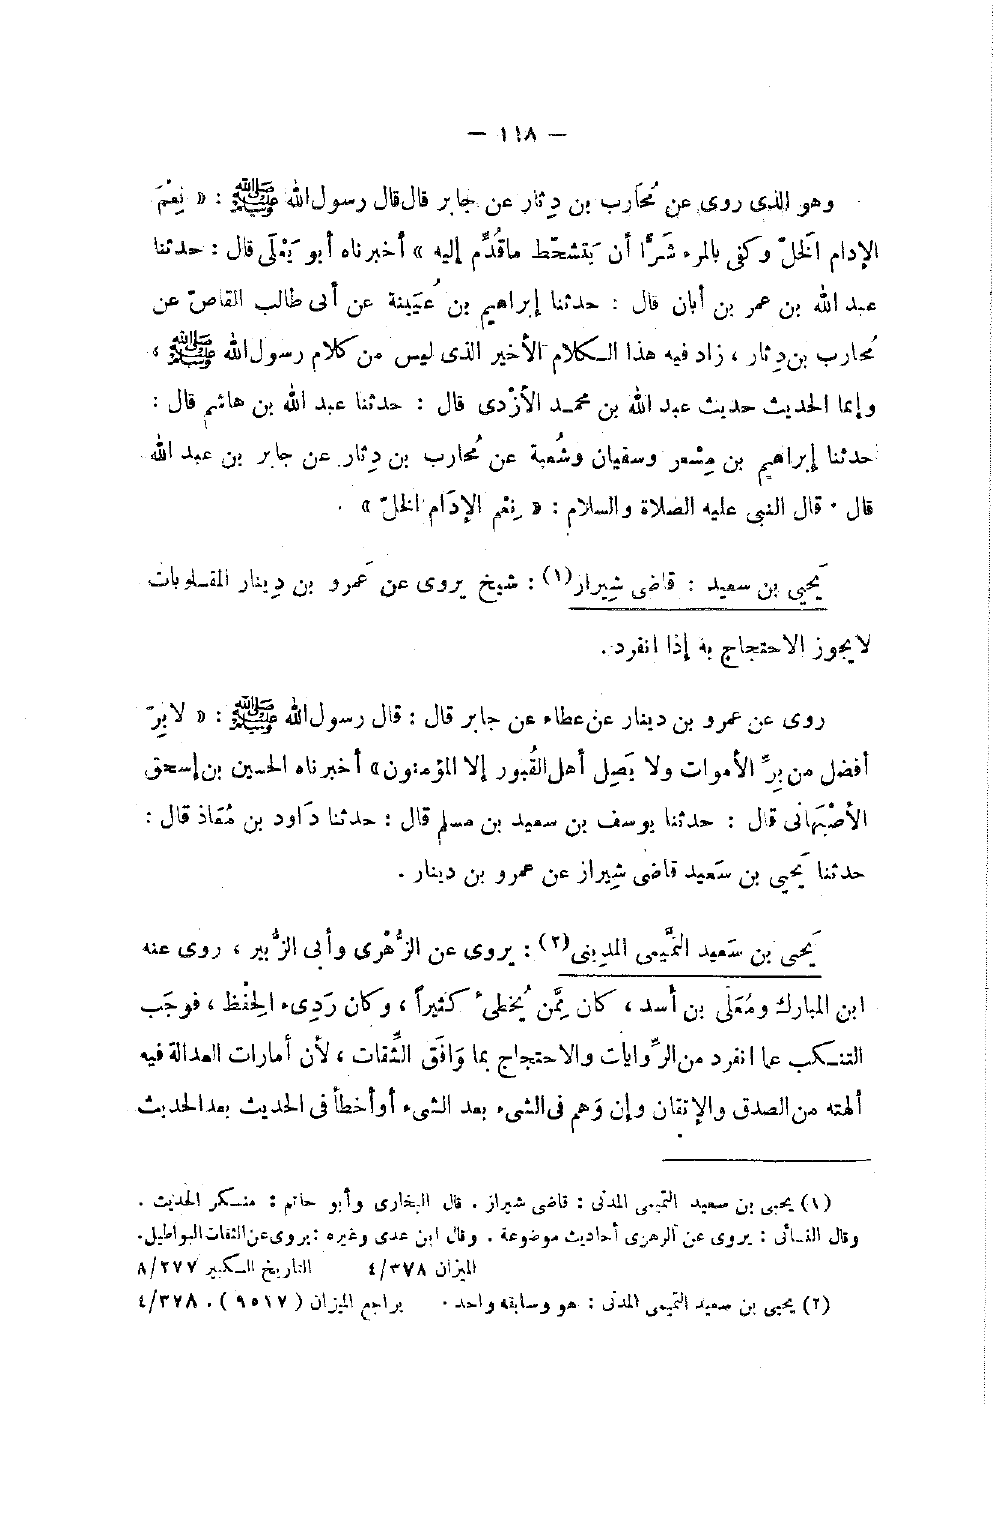 — ١١٨ —
وهو الذى روى عن مُحَارب بن دِثار عن جابر قال قال رسول الله ﷺ : « نِعْمَ
الإدام الخَلّ وكفى بالمرء شَرًّا أن يَتَسَخّط ماقُدِّم إليه » أخبرناه أبو يَعْلَى قال : حدثنا
عبد الله بن عمر بن أبان قال : حدثنا إبراهيم بن عُيَيْنة عن أبى طالب القاصّ عن
مُحارب بن دِثار ، زاد فيه هذا الكلام الأخير الذى ليس من كلام رسول الله ﷺ ،
وإنما الحديث حديث عبد الله بن محمد الأزْدى قال : حدثنا عبد الله بن هاشم قال :
حدثنا إبراهيم بن مِسْعر وسفيان وشُعبة عن مُحارب بن دِثار عن جابر بن عبد الله
قال . قال النبى عليه الصلاة والسلام : « نِعْم الإدَام الخلّ » .
يَحيى بن سعيد : قاضى شِيراز (١) : شيخ يروى عن عَمرو بن دِينار المقلوبات
لا يجوز الاحتجاج به إذا انفرد .
روى عن عمرو بن دينار عن عطاء عن جابر قال : قال رسول الله ﷺ : « لا بِرّ
أفضل من بِرِّ الأموات ولا يَصِل أهل القُبور إلا المؤمنون» أخبرناه الحسين بن إسحق
الأصْبَهانى قال : حدثنا يوسف بن سعيد بن مسلم قال : حدثنا دَاود بن مُعَاذ قال :
حدثنا يَحيى بن سَعيد قاضى شِيراز عن عمرو بن دينار .
يَحيى بن سَعيد التَّميمى المدِينى (٢) : يروى عن الزُّهْرى وأبى الزُّبير ، روى عنه
ابن المبارك ومُعَلَى بن أسد ، كان مِمَّن يُخطىٴ كثيراً ، وكان رَدِىء الحِفْظ ، فوجَب
التنكب عما انفرد من الرِّوايات والاحتجاج بما وَافَق الثِّقات ، لأن أمارات العدالة فيه
ألهته من الصدق والإتقان وإن وَهم فى الشىء بعد الشىء أو أخطأ فى الحديث بعد الحديث
(١) يحيى بن سعيد التميمى المدنى : قاضى شيراز . قال البخارى وأبو حاتم : منكر الحديث .
وقال النسائى : يروى عن الزهرى أحاديث موضوعة . وقال ابن عدى وغيره : يروى عن الثقات البواطيل.
الميزان ٤/٣٧٨ التاريخ الكبير ٨/٢٧٧
(٢) يحيى بن سعيد التميمى المدنى : هو وسابقه واحد . يراجع الميزان ( ٩٥١٧ ) . ٤/٣٧٨